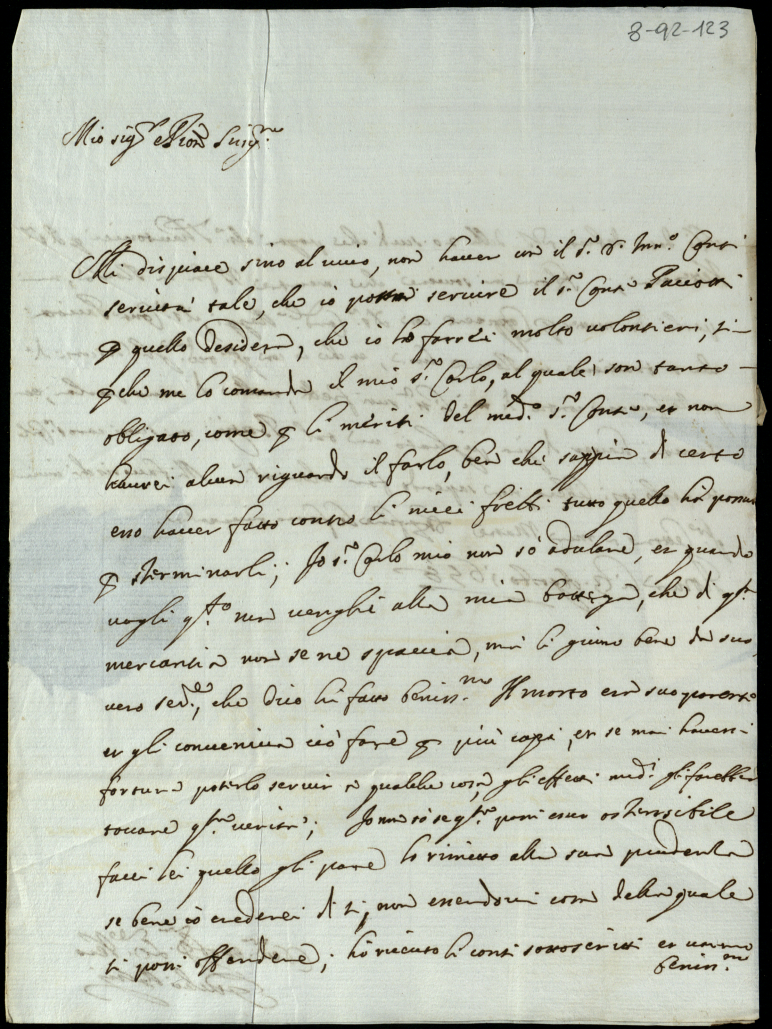 8-92-123
Mio sig.r e Pron Sing.mo
Mi dispiace sino al vivo, non haver con il S.r D. Inn.o Conti
servitù tale, che io possa servire il S.r Conte Pacciotti
p quello desidera, che io lo farrei molto volontieri, si
p che me lo comanda il mio S.r Carlo, al quale son tanto
obligato, come p li meriti del med.o S.r Conte, et non
haurei alcun riguardo il farlo, ben che sappia di certo
esso haver fatto contro li miei fretti tutto quello ha possuto
p sterminarli; Io S.r Carlo mio non sò adulare, et quando
vogli q.to non venghi alla mia bottega, che di q.ta
mercantia non se ne spaccia, mà li giuro bene da suo
vero ser.e, che dico ha fatto beniss.mo Il morto era suo parente
et gli conveniva ciò fare p più capi, et se mai havessi
fortuna poterlo servir in qualche cosa, gli effetti med.i gli farebber
tovare q.ta verità; Io non sò se q.ta possi esser ostensibile
facci lei quello gli pare lo rimetto alla sua prudenza
se bene io crederei di si, non essendovi cosa della quale
si possi offendere; hò riceuto li conti sottoscritti et vanno
beniss.mo